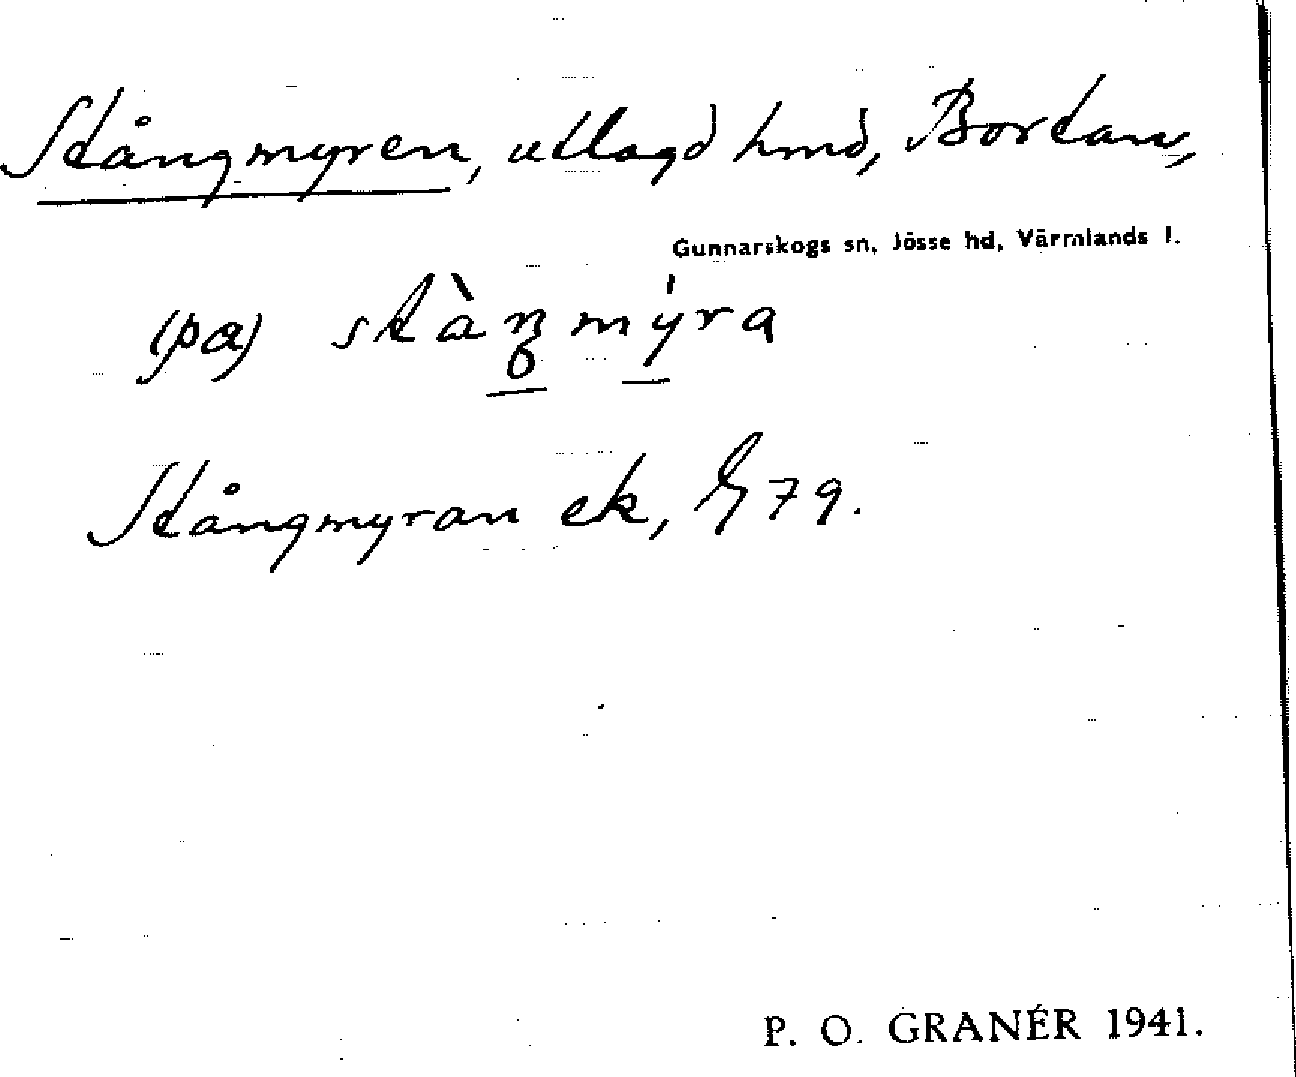 Stångmyren, utlagd hmd, Bortan,
Gunnarskogs sn, Jösse hd, Värmlands l.
(pa) stàŋmýra
Stångmyran ek, G 79.
P. O. GRANÉR 1941.